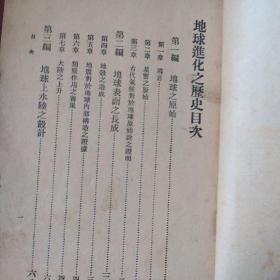 地球進化之歷史目次
第一編 地球之原始
第一章 導言
第二章 星雲之原始
第三章 古代氣候對於地球原始說之證明
第二編 地球表面之長成
第四章 地殼之造成
第五章 地震對於地球內部構造之證據
第六章 類原作用之善果
第七章 大陸之上升
第三編 地球上水陸之設計
目次
一